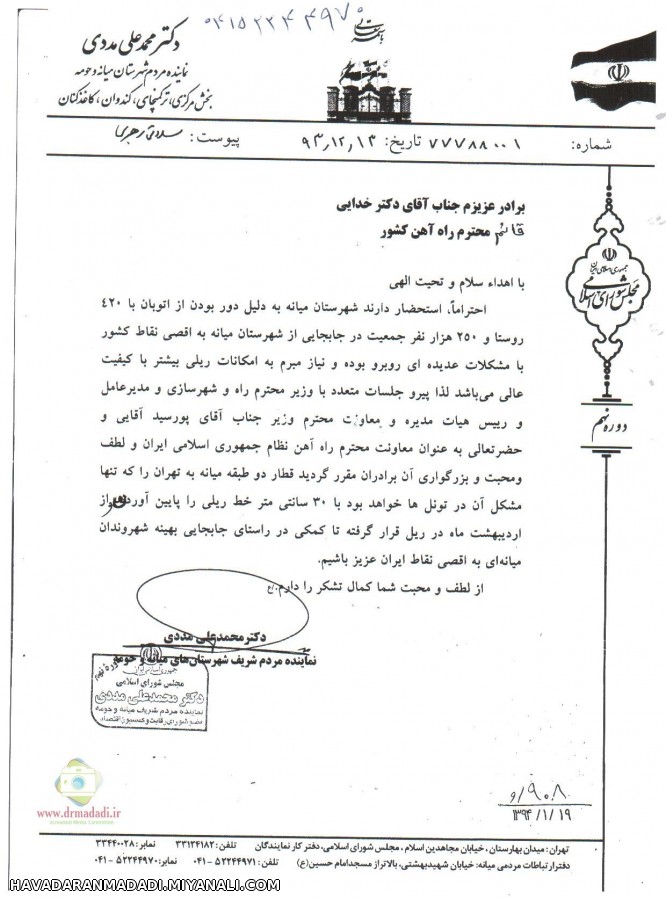 ۰۴۱۵۲۲۴۴۹۷۰
دکتر محمد علی مددی
نماینده مردم شهرستان میانه و حومه
بخش مرکزی، ترکمنچای، کندوان، کاغذکنان
شماره: ۷۷۷۸۸۰۰۱ تاریخ: ۹۳٫۱۲٫۱۳ پیوست:
برادر عزیزم جناب آقای دکتر خدایی
قائم محترم راه آهن کشور
با اهداء سلام و تحیت الهی
احتراماً، استحضار دارند شهرستان میانه به دلیل دور بودن از اتوبان با ۴۲۰
روستا و ۲۵۰ هزار نفر جمعیت در جابجایی از شهرستان میانه به اقصی نقاط کشور
با مشکلات عدیده ای روبرو بوده و نیاز مبرم به امکانات ریلی بیشتر با کیفیت
عالی می‌باشد لذا پیرو جلسات متعدد با وزیر محترم راه و شهرسازی و مدیرعامل
و رییس هیات مدیره و معاونت محترم وزیر جناب آقای پورسید آقایی و
حضرتعالی به عنوان معاونت محترم راه آهن نظام جمهوری اسلامی ایران و لطف
ومحبت و بزرگواری آن برادران مقرر گردید قطار دو طبقه میانه به تهران را که تنها
مشکل آن در تونل ها خواهد بود با ۳۰ سانتی متر خط ریلی را پایین آوردن از
اردیبهشت ماه در ریل قرار گرفته تا کمکی در راستای جابجایی بهینه شهروندان
میانه‌ای به اقصی نقاط ایران عزیز باشیم.
از لطف و محبت شما کمال تشکر را دارم.
دکترمحمدعلی مددی
نماینده مردم شریف شهرستان‌های میانه و حومه
جمهوری اسلامی ایران
مجلس شورای اسلامی
دوره نهم
دکتر محمدعلی مددی
نماینده مردم شریف میانه و حومه
عضو شورای رقابت و کمسیون اقتصاد
جمهوری اسلامی ایران
مجلس شورای اسلامی
دوره نهم
www.drmadadi.ir
۹۰۸/و
۱۳۹۴/۱/۱۹
تهران: میدان بهارستان، خیابان مجاهدین اسلام، مجلس شورای اسلامی، دفتر کار نمایندگان تلفن: ۳۳۱۲۴۱۸۲ نمابر: ۳۳۴۴۰۰۲۸
دفتر ارتباطات مردمی میانه: خیابان شهیدبهشتی، بالاتراز مسجدامام حسین(ع) تلفن: ۵۲۲۴۴۹۷۱-۰۴۱ نمابر: ۵۲۲۴۴۹۷۰-۰۴۱
HAVADARANMADADI.MIYANALI.COM